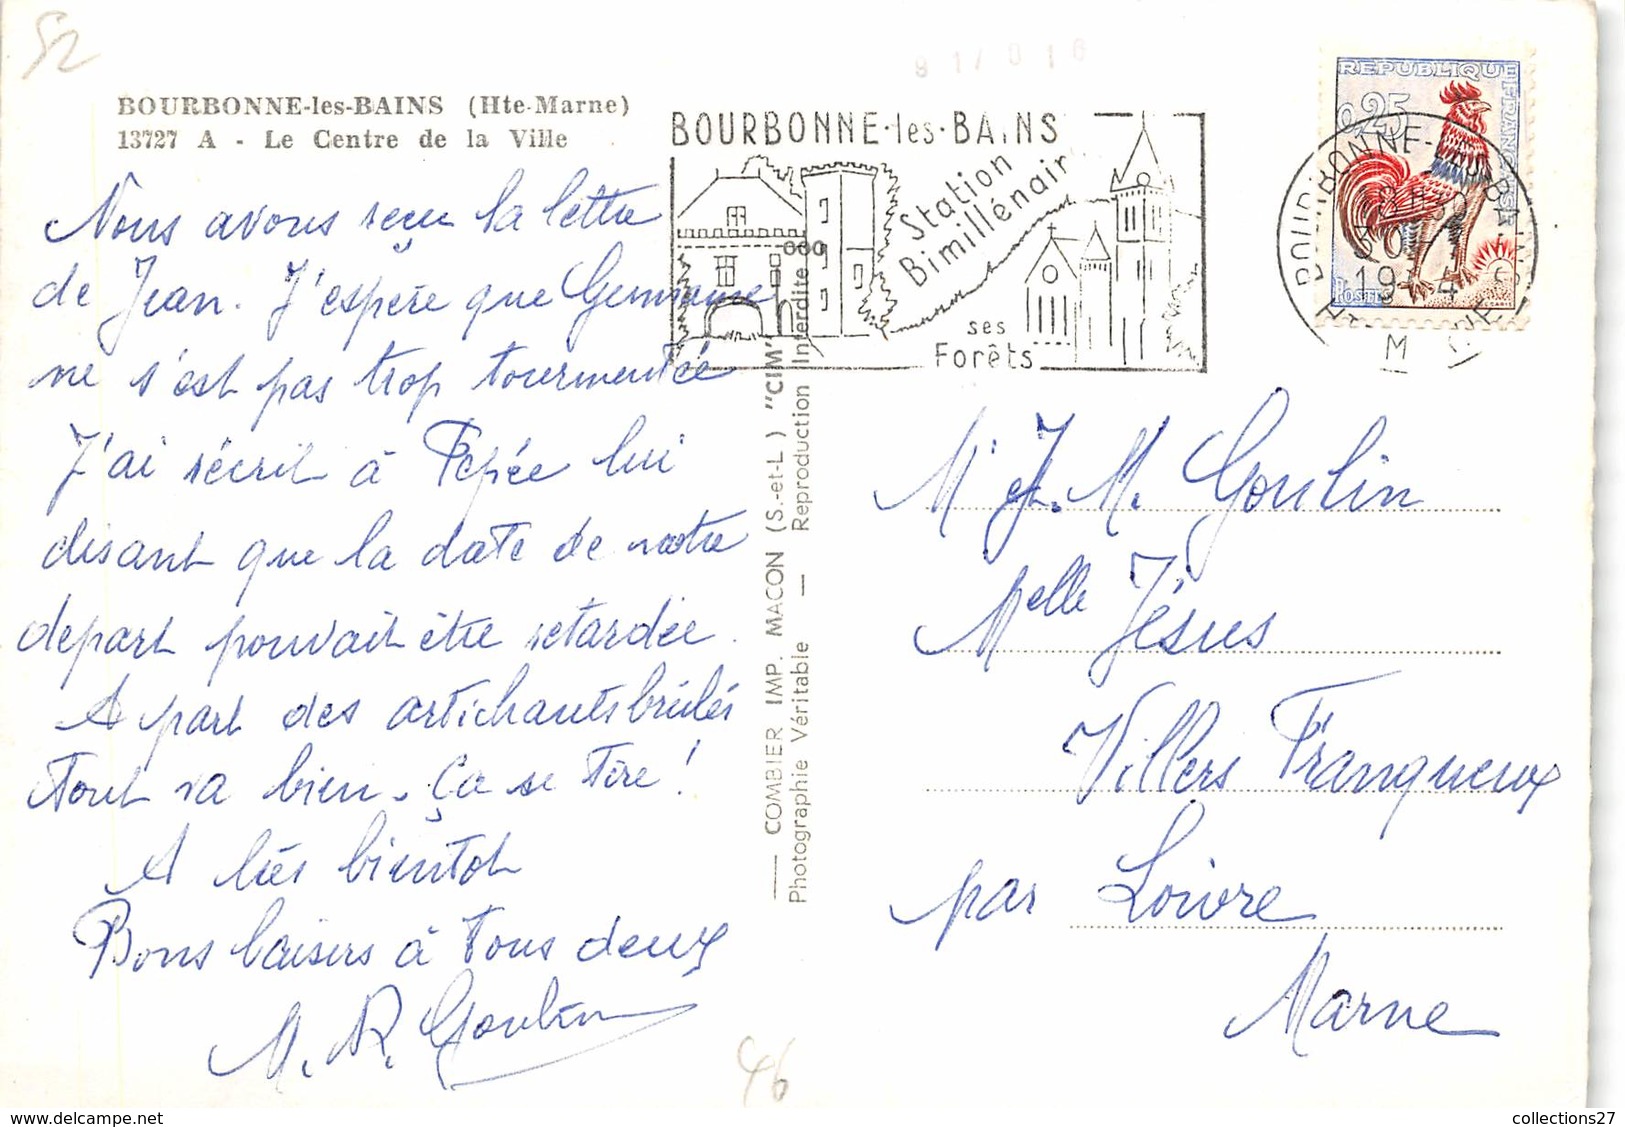 52
BOURBONNE-les-BAINS (Hte-Marne)
13727 A - Le Centre de la Ville
Nous avons reçu la lettre
de Jean. J'espère que Germaine
ne s'est pas trop tourmentée
J'ai récrit à Pépée lui
disant que la date de notre
depart pouvait être retardée.
A part des artichauts brûlés
Tout va bien. Ça se tire !
A très bientôt
Bons baisers à Tous deux
M. R. Goulin
COMBIER IMP. MACON (S.-et-L.) "CIM"
Photographie Véritable — Reproduction Interdite
BOURBONNE-les-BAINS
Station
Bimillénair
ses
Forêts
REPUBLIQUE FRANÇAISE
0,25
POSTES
BOURBONNE-LES-BAINS
30
M
M. J. M. Goulin
Melle Jésus
Villers Franqueux
par Loivre
Marne
46
collections27